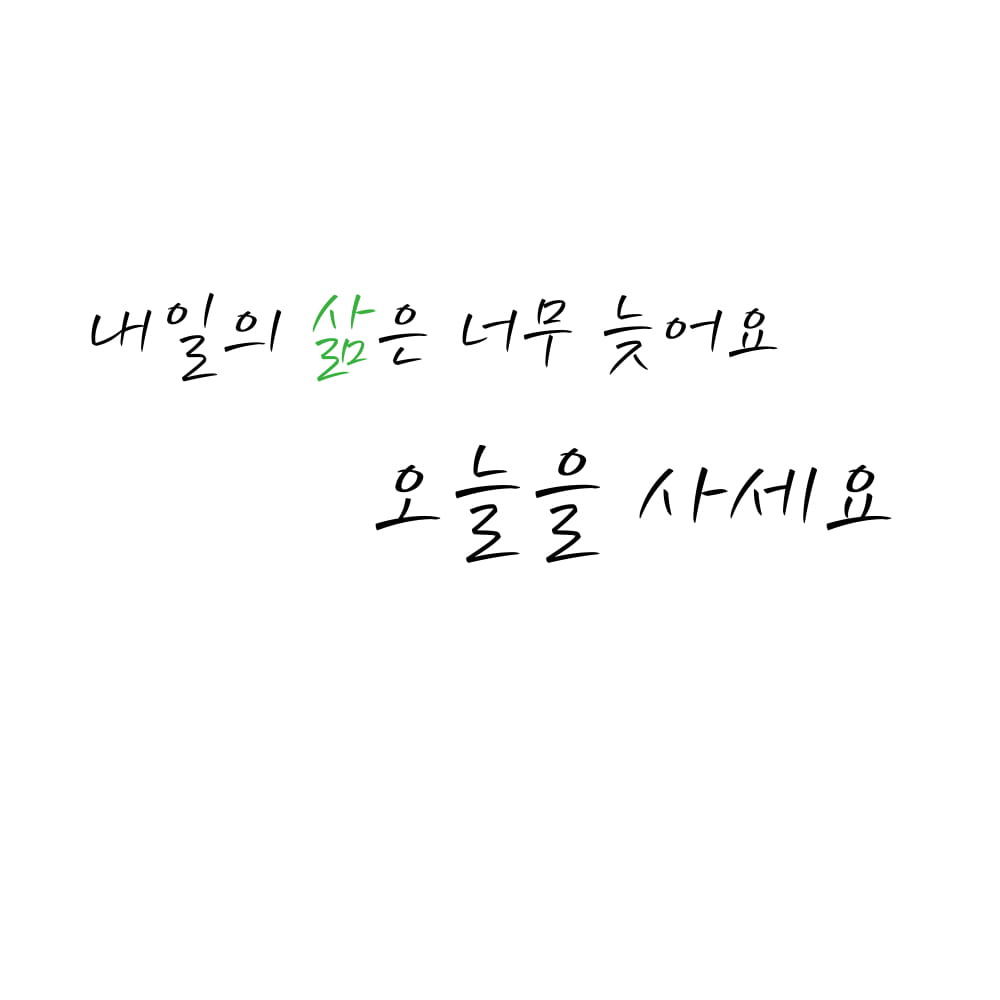 내일의 삶은 너무 늦어요
오늘을 사세요